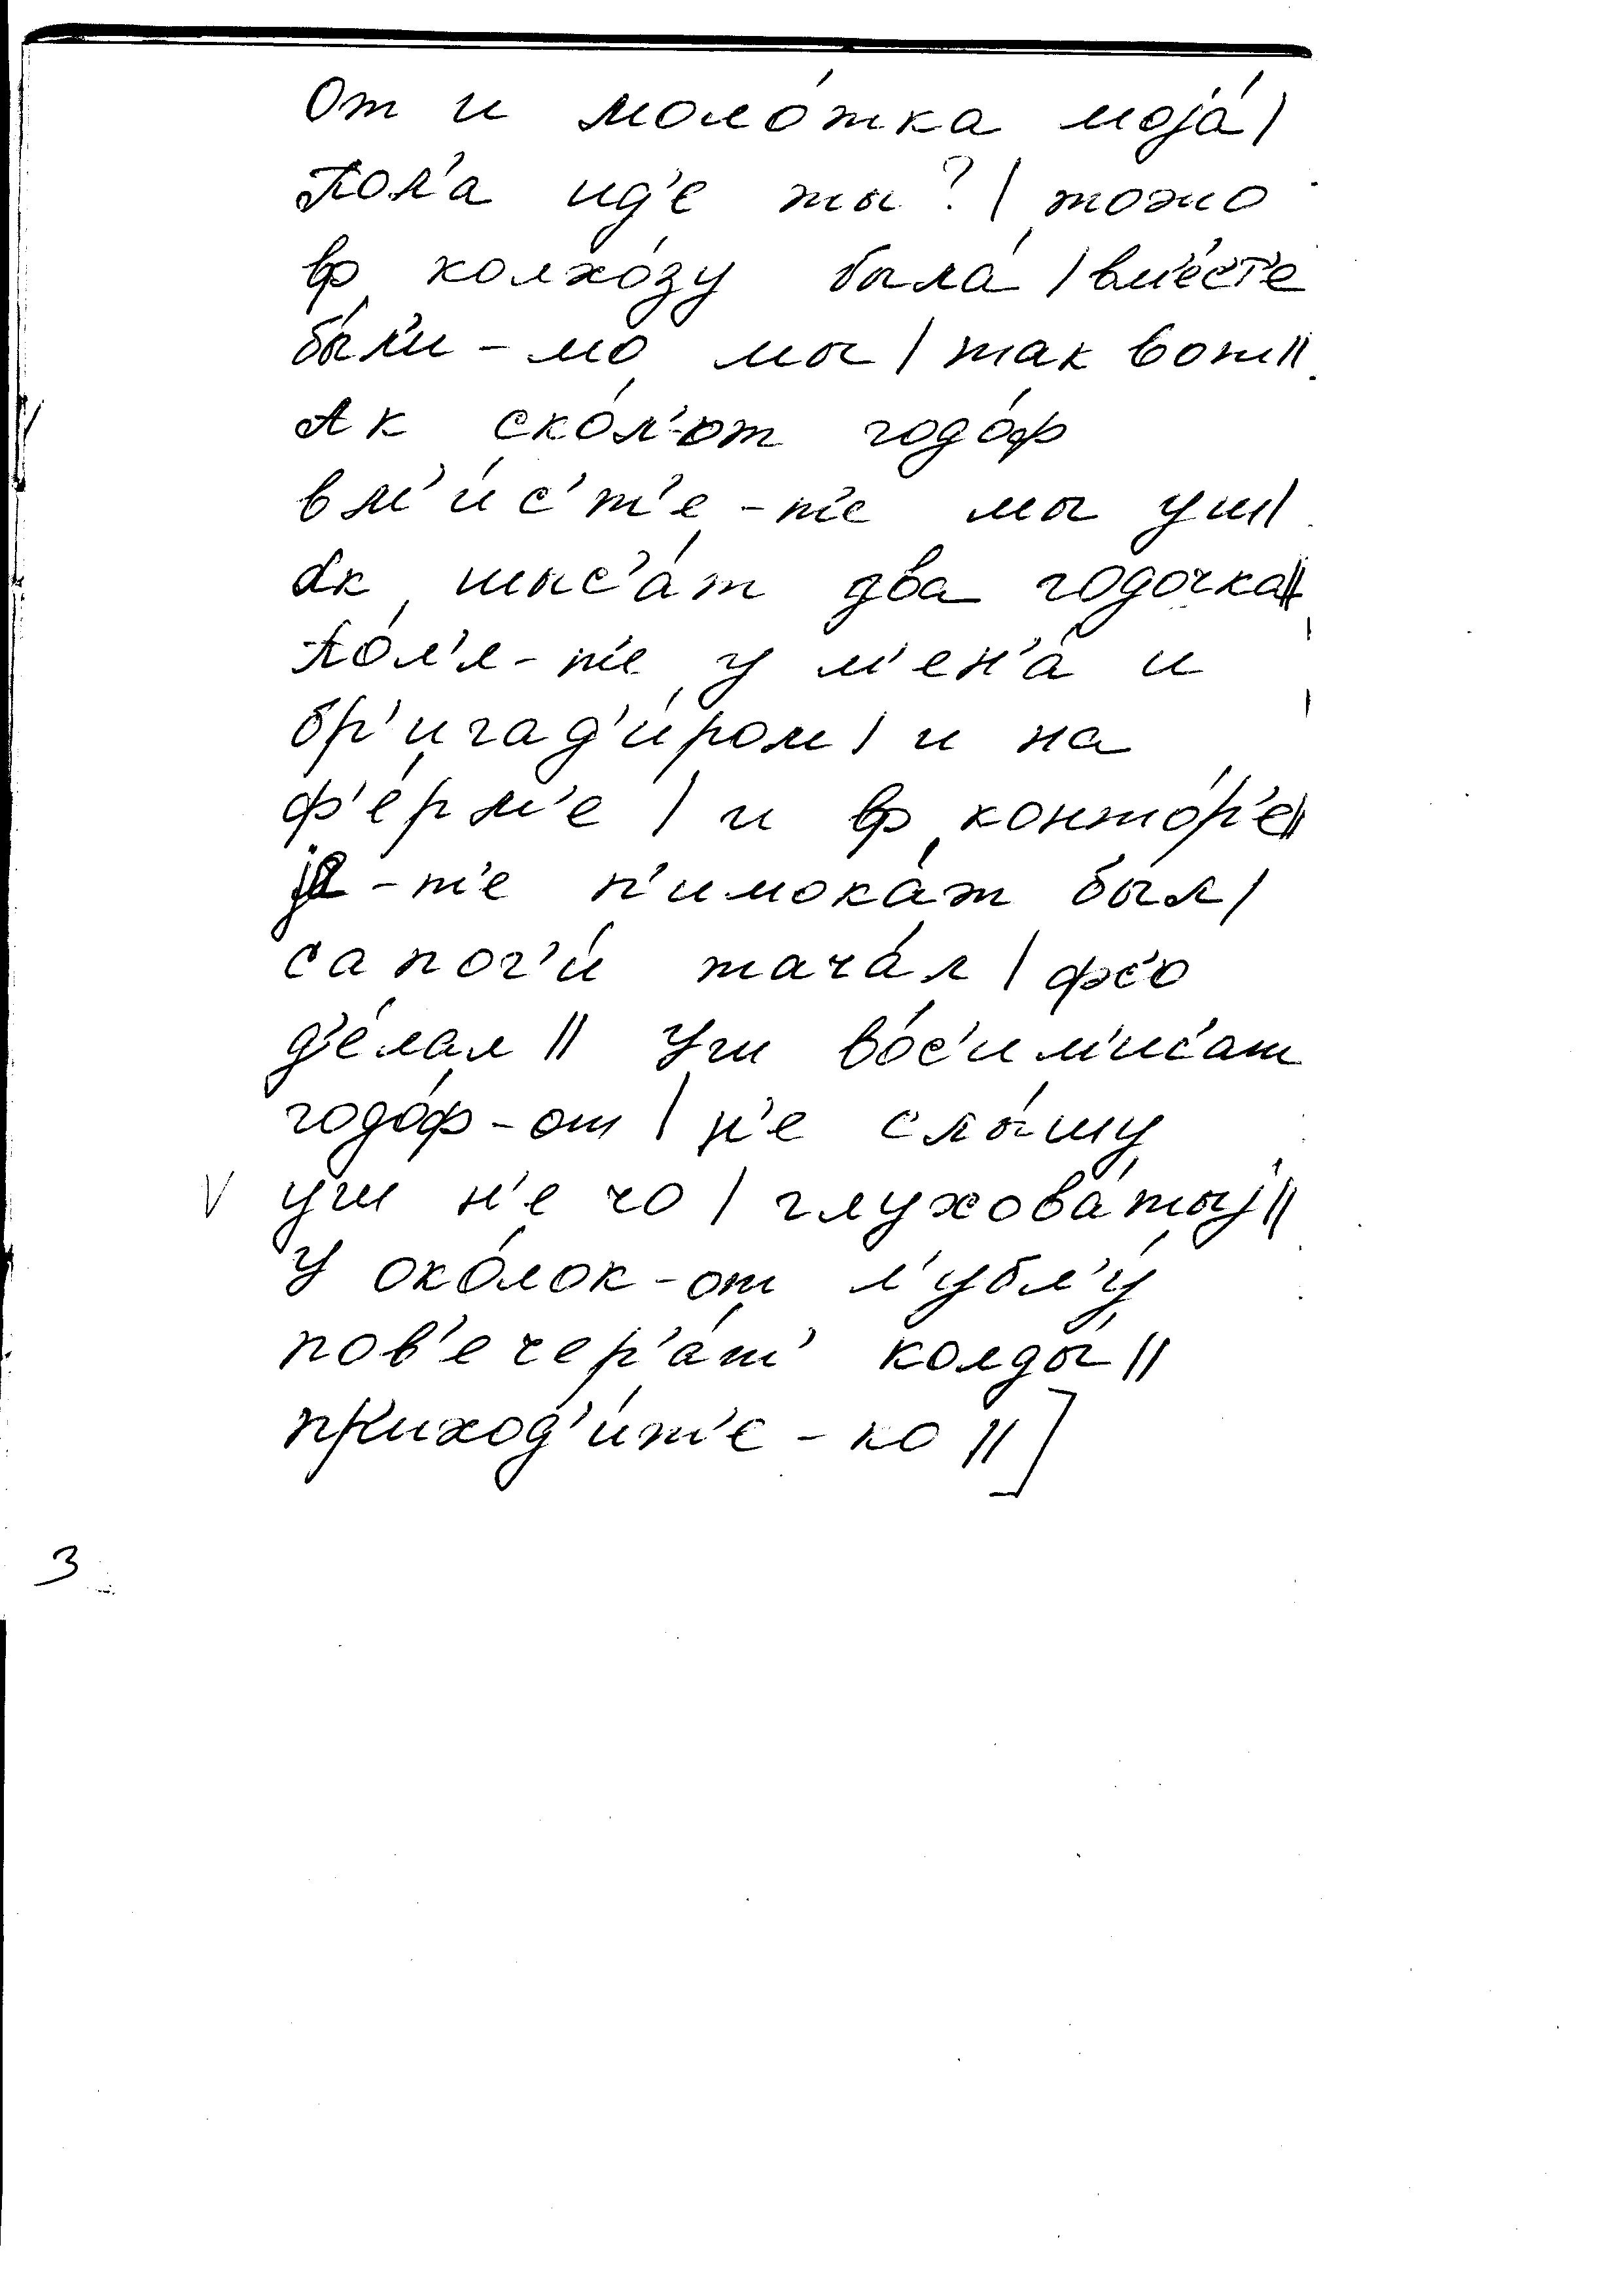 От и моло́тка моја́ |
Пол'а ид'е ты? | тожо
вф колхо́зу была́ | вм'е́с'т'е
бы́л'и-то мы | так вот ||
Ак ско́л'-от годо́ф
вм'и́с'т'е-т'е мы уш |
Ак шыс'а́т два годочка ||
По́л'а-т'е у м'ен'а́ и
бр'игад'и́ром | и на
ф'е́рм'е | и вф конто́р'е ||
ја-т'е п'имока́т был |
сапог'и́ тача́л | фс'о
д'е́лал || Уш во́с'им'ис'ат
годо́ф-от | н'е слы́шу
уш н'е чо | глухова́тыј ||
У око́лок-от л'убл'у́
пов'ечер'а́т' колды́ ||
приход'и́т'е-ко || ]
3